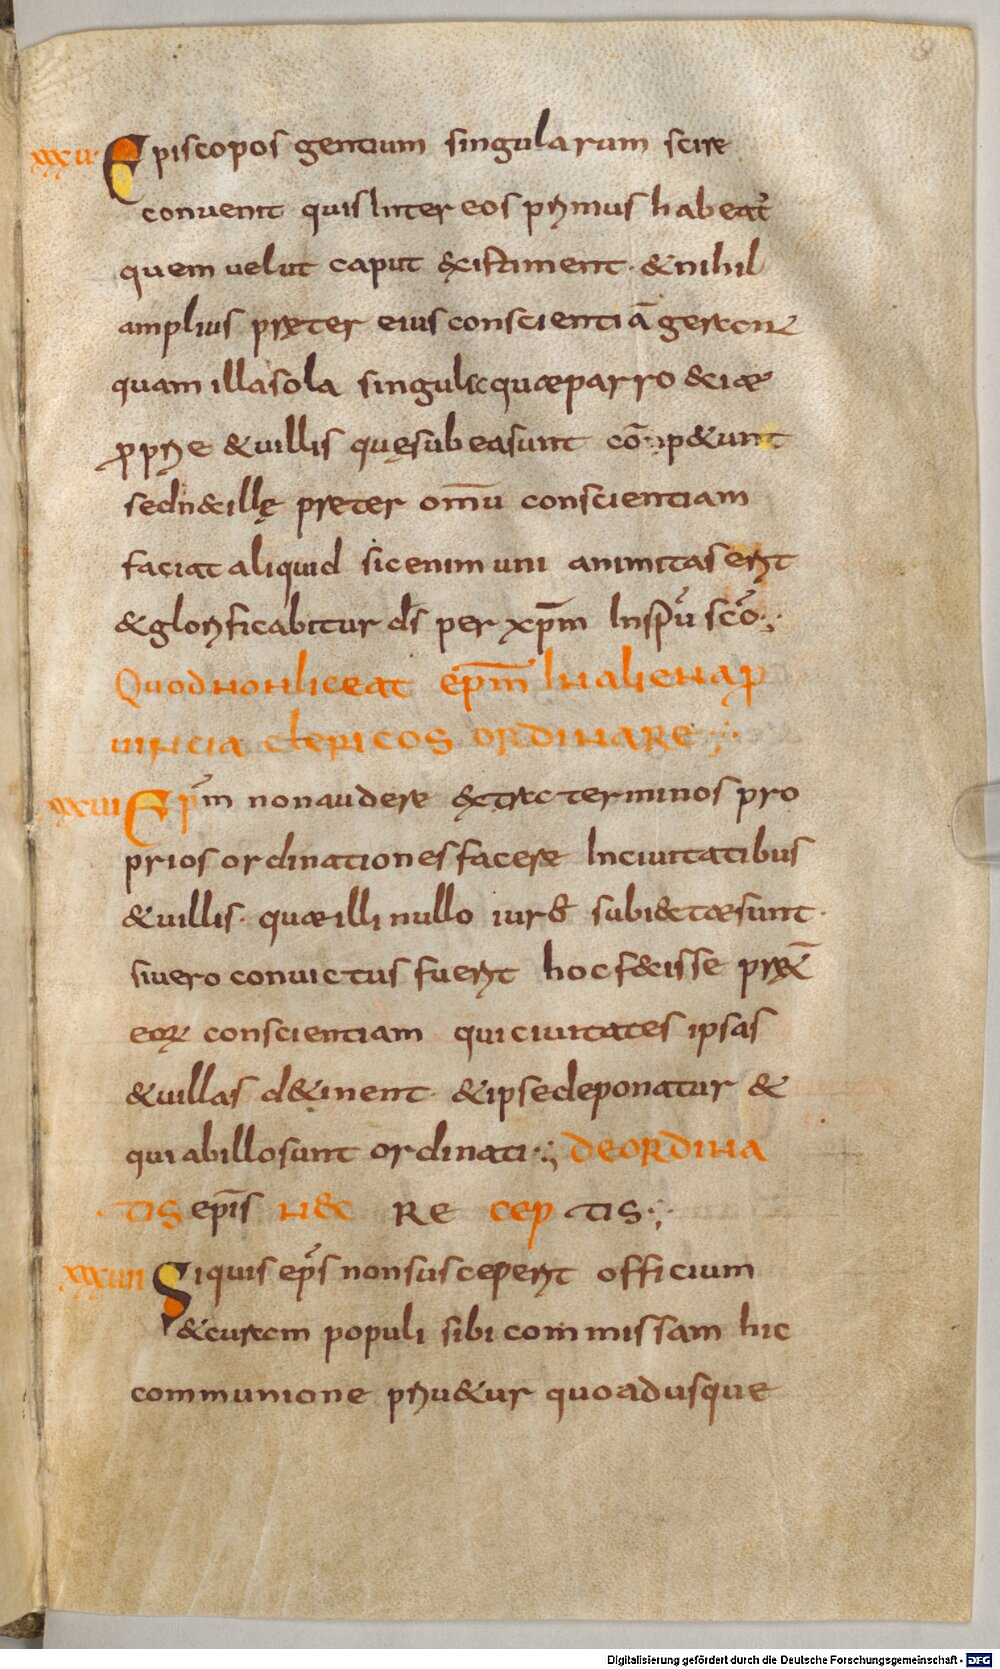 8
xxxv. Episcopos gentium singularum scire
conuenit quis inter eos primus habeat̄
quem uelut caput existiment · & nihil
amplius pręter eius conscientiā gerant
quam illa sola singuli quæ parrociæ
ꝓprie & uillis quę sub ea sunt cōp&unt
sed n& ille pręter omīu conscientiam
faciat aliquid sic enim unianimitas erit
& glorificabitur dˉs per xp̄m In sp̄u scō·,·
Quod non liceat ep̄m In aliena ꝓ
uincia clericos ordinare·,·
xxxvi Ep̄m non audere extra terminos pro
prios ordinationes facere In ciuitatibus
& uillis · quæ illi nullo iure subiectæ sunt ·
si uero conuictus fuerit hoc fecisse pręt̄
eoꝝ conscientiam qui ciuitates ipsas
& uillas d&inent · & ipse deponatur &
qui ab illo sunt ordinati·,· De ordina
tis ep̄is nec receptis·,·
xxxvii Si quis ep̄s non susceperit officium
& curam populi sibi commissam hic
communione priu&ur quoadusque
Digitalisierung gefördert durch die Deutsche Forschungsgemeinschaft - DFG